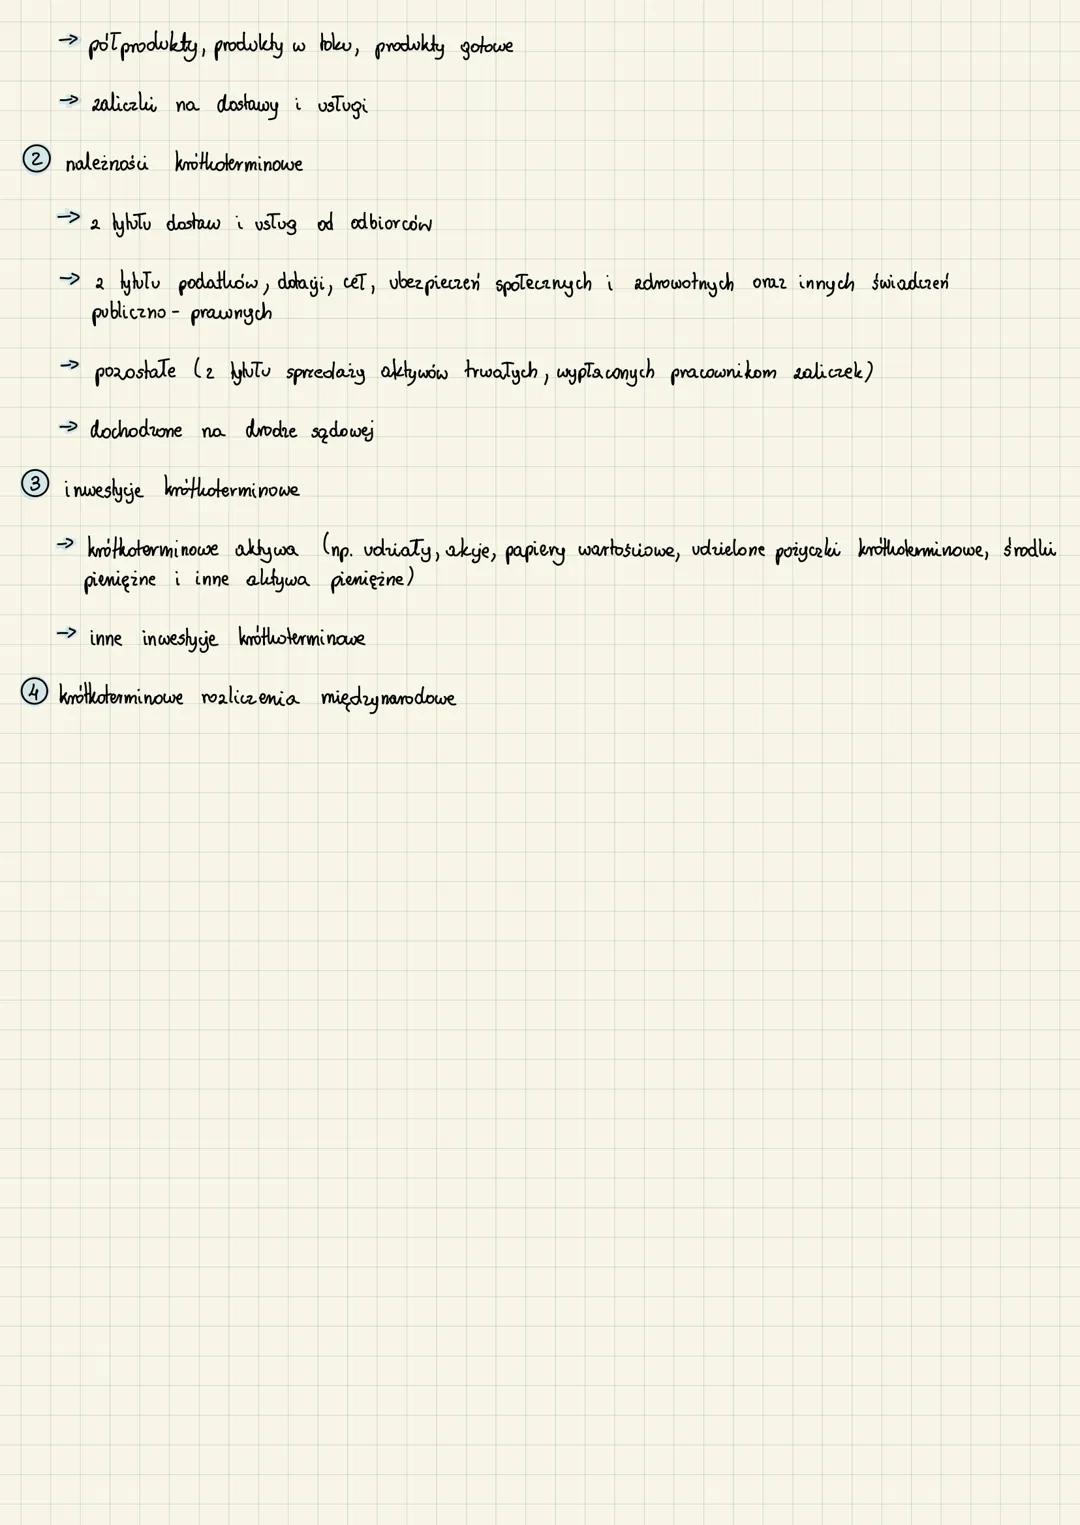 → półprodukty, produkty w toku, produkty gotowe
→ zaliczki na dostawy i usługi
② należności krótkoterminowe
→ z tytułu dostaw i usług od odbiorców
→ z tytułu podatków, dotacji, ceł, ubezpieczeń społecznych i zdrowotnych oraz innych świadczeń
publiczno - prawnych
→ pozostałe (z tytułu sprzedaży aktywów trwałych, wypłaconych pracownikom zaliczek)
→ dochodzone na drodze sądowej
③ inwestycje krótkoterminowe
→ krótkoterminowe aktywa (np. udziały, akcje, papiery wartościowe, udzielone pożyczki krótkoterminowe, środki
pieniężne i inne aktywa pieniężne)
→ inne inwestycje krótkoterminowe
④ krótkoterminowe rozliczenia międzynarodowe